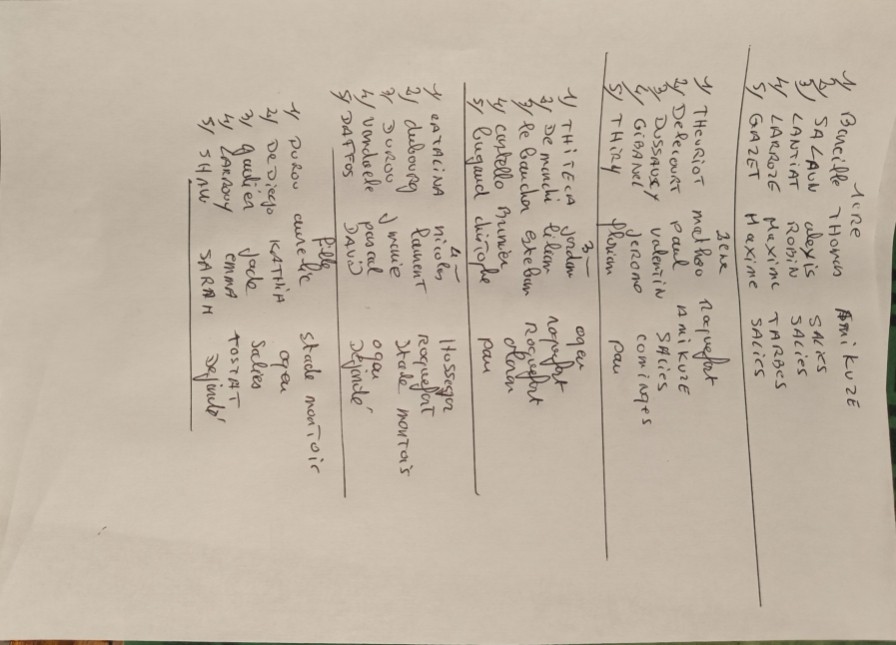 1ere
1) Bareille Thomas AMIKUZE
2) SALAUN alexis SALIES
3) LANTIAT ROBIN SALIES
4) LARROZE MAXIME TARBES
5) GAZET MAXIME SALIES
2eme
1) THEURIOT matheo Roquefort
2) DELECOURT Paul AMIKUZE
3) DUSSAUCY Valentin SALIES
4) GIBANEL JEROME COMINGES
5) THIRY florian pau
3
1) THITECA jordan ogeu
2) Demuchi lilian roquefort
3) le bancher Esteban Roquefort
4) castello Brunier oloron
5) Bugaud christophe pau
4
1) CATALINA nicolas Hossegor
2) dubourg laurent Roquefort
3) DUROU J marie Stade montois
4) vandaele pascal ogeu
5) DAFFOS DAVID Dejondé
fille
1) DUROU aurelie stade montois
2) DeDiego KATHIA ogeu
3) gautier Jade Salies
4) LARROUY EMMA TOSTAT
5) SHAW SARAH Dejondé